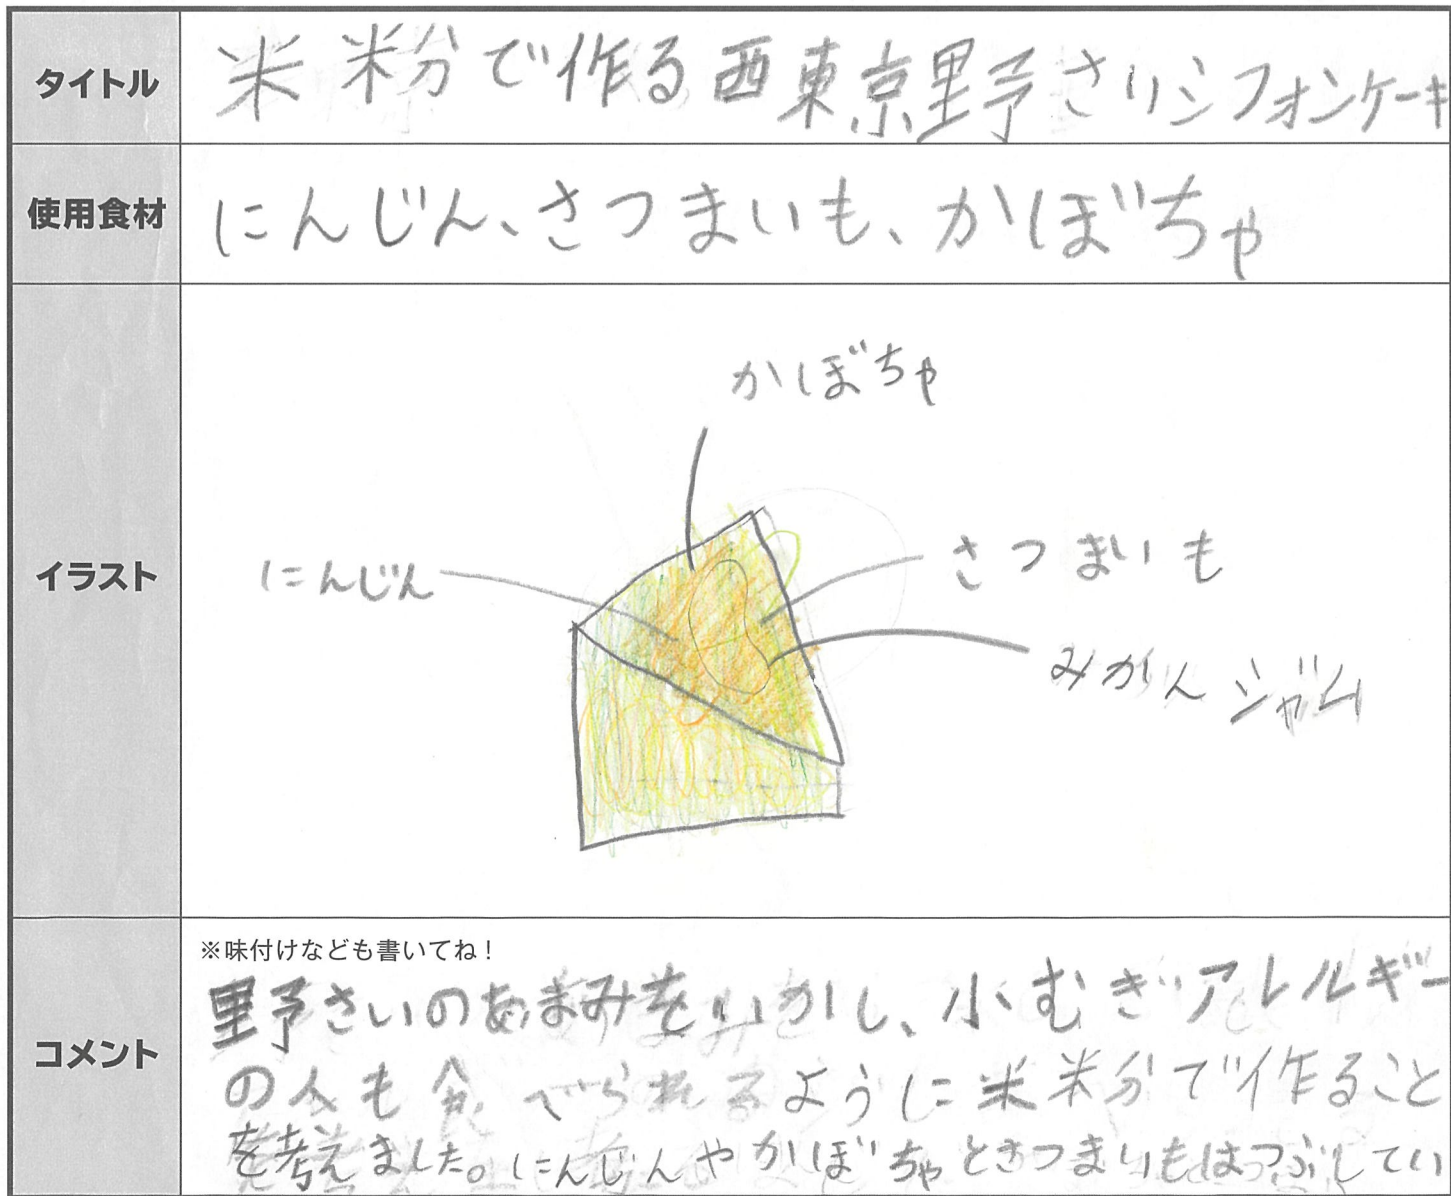 タイトル
米粉で作る西東京野さいシフォンケーキ
使用食材
にんじん、さつまいも、かぼちゃ
イラスト
かぼちゃ
にんじん
さつまいも
みかんジャム
コメント
※味付けなども書いてね！
野さいのあまみをいかし、小むぎアレルギー
の人も食べられるように米粉で作ること
を考えました。にんじんやかぼちゃとさつまいもはつぶしてい